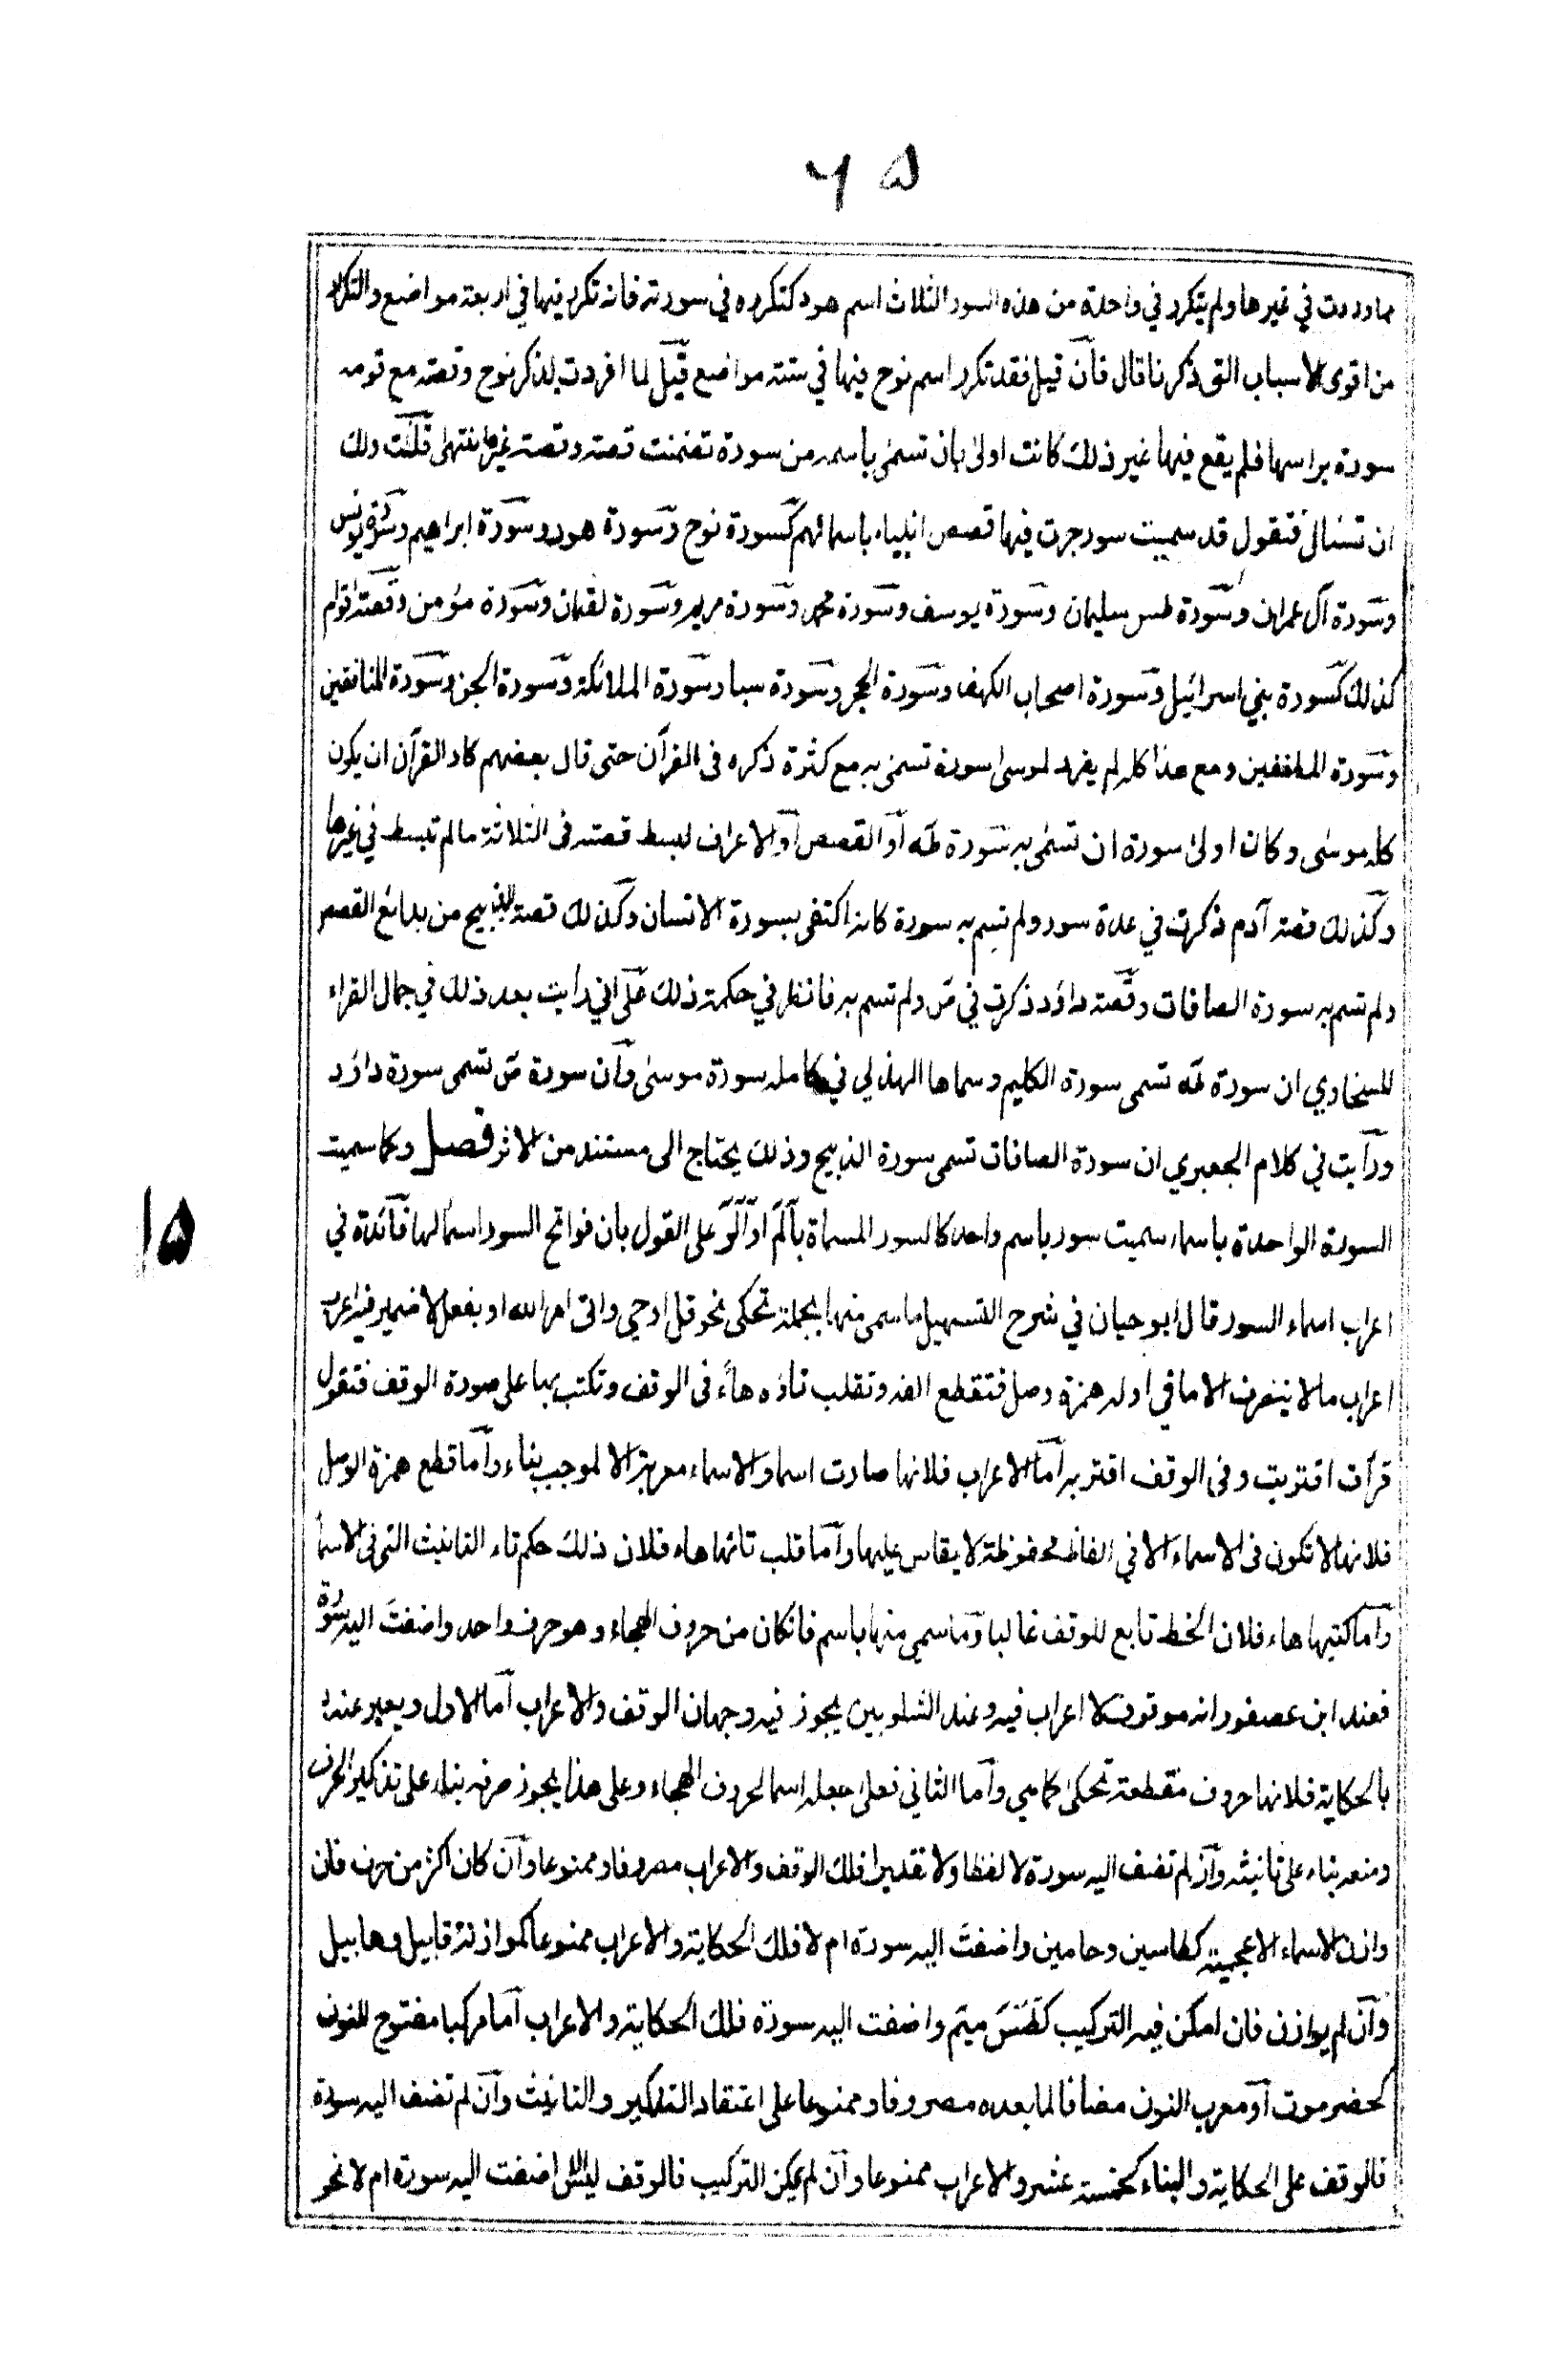 ٦٥
مما وردت في غيرها ولم يتكرر في واحدة من هذه السور الثلاث اسم هود كتكرره في سورته فانه تكرر فيها في اربعة مواضع والتكرار
من اقوى الاسباب التي ذكرنا قال فان قيل فقد تكرر اسم نوح فيها في ستة مواضع قيل لما افردت لذكر نوح وقصته مع قومه
سورة براسها فلم يقع فيها غير ذلك كانت اولى بان تسمى باسمه من سورة تضمنت قصته وقصة غيره انتهى قلت ولك
ان تسئال فتقول قد سميت سور جرت فيها قصص انبياء باسمائهم كسورة نوح وسورة هود وسورة ابراهيم وسورة يونس
وسورة آل عمران وسورة طس سليمان وسورة يوسف وسورة محمد وسورة مريم وسورة لقمان وسورة مؤمن وقصة اقوام
كذلك كسورة بني اسرائيل وسورة اصحاب الكهف وسورة الحجر وسورة سبا وسورة الملائكة وسورة الجن وسورة المنافقين
وسورة المطففين ومع هذا كله لم يفرد لموسى سورة تسمى به مع كثرة ذكره فى القرآن حتى قال بعضهم كاد القرآن ان يكون
كله موسى وكان اولى سورة ان تسمى به سورة طه او القصص او الاعراف لبسط قصته فى الثلاثة ما لم تبسط في غيرها
وكذلك قصة آدم ذكرت في عدة سور ولم تسم به سورة كانه اكتفى بسورة الانسان وكذلك قصة الذبيح من بدائع القصص
ولم تسم به سورة الصافات وقصة داؤد ذكرت في ص ولم تسم به فانظر في حكمة ذلك على اني رايت بعد ذلك في جمال القراء
للسخاوي ان سورة طه تسمى سورة الكليم وسماها الهذلي في كامله سورة موسى وان سورة ص تسمى سورة داؤد
ورايت في كلام الجعبري ان سورة الصافات تسمى سورة الذبيح وذلك يحتاج الى مستند من الاثر فصل وكما سميت
السورة الواحدة باسماء سميت سور باسم واحد كالسور المسماة بآلم او آلر على القول بان فواتح السور اسما لها فائدة في
اعراب اسماء السور قال ابو حيان في شرح التسهيل ما سمى منها بجملة تحكى نحو قل اوحي واتى امر الله او بفعل لا ضمير فيه اعرب
اعراب ما لا ينصرف الا ما في اوله همزة وصل فتقطع الفه وتقلب تاؤه هاء فى الوقف وتكتب بها على صورة الوقف فتقول
قرأت اقتربت وفى الوقف اقتربه اما الاعراب فلانها صارت اسما والاسماء معربة الا لموجب بناء واما قطع همزة الوصل
فلانها لا تكون فى الاسماء الا في الفاظ محفوظة لا يقاس عليها واما قلب تائها هاء فلان ذلك حكم تاء التانيث التى فى الاسماء
واما كتبها هاء فلان الخط تابع للوقف غالبا وما سمي منها باسم فانكان من حروف الهجاء وهو حرف واحد واضفت اليه سورة
فعند ابن عصفور انه موقوف لا اعراب فيه وعند الشلوبين يجوز فيه وجهان الوقف والاعراب اما الاول ويعبر عنه
بالحكاية فلانها حروف مقطعة تحكى كما هي واما الثاني فعلى جعله اسما لحروف الهجاء وعلى هذا يجوز صرفه بناء على تذكير الحرف
ومنعه بناء على تانيثه وان لم تضف اليه سورة لا لفظا ولا تقديرا فلك الوقف والاعراب مصروفا وممنوعا وان كان اكثر من حرف فان
وازن الاسماء الاعجمية كطاسين وحامين واضفت اليه سورة ام لا فلك الحكاية والاعراب ممنوعا كموازنة قابيل وهابيل
وان لم يوازن فان امكن فيه التركيب كطسم ميم واضفت اليه سورة فلك الحكاية والاعراب اما مركبا مفتوح النون
كحضرموت او معرب النون مضافا لما بعده مصروفا وممنوعا على اعتقاد التذكير والتانيث وان لم تضف اليه سورة
فالوقف على الحكاية والبناء كخمسة عشر والاعراب ممنوعا وان لم يمكن التركيب فالوقف ليس الا اضفت اليه سورة ام لا نحو
١٥